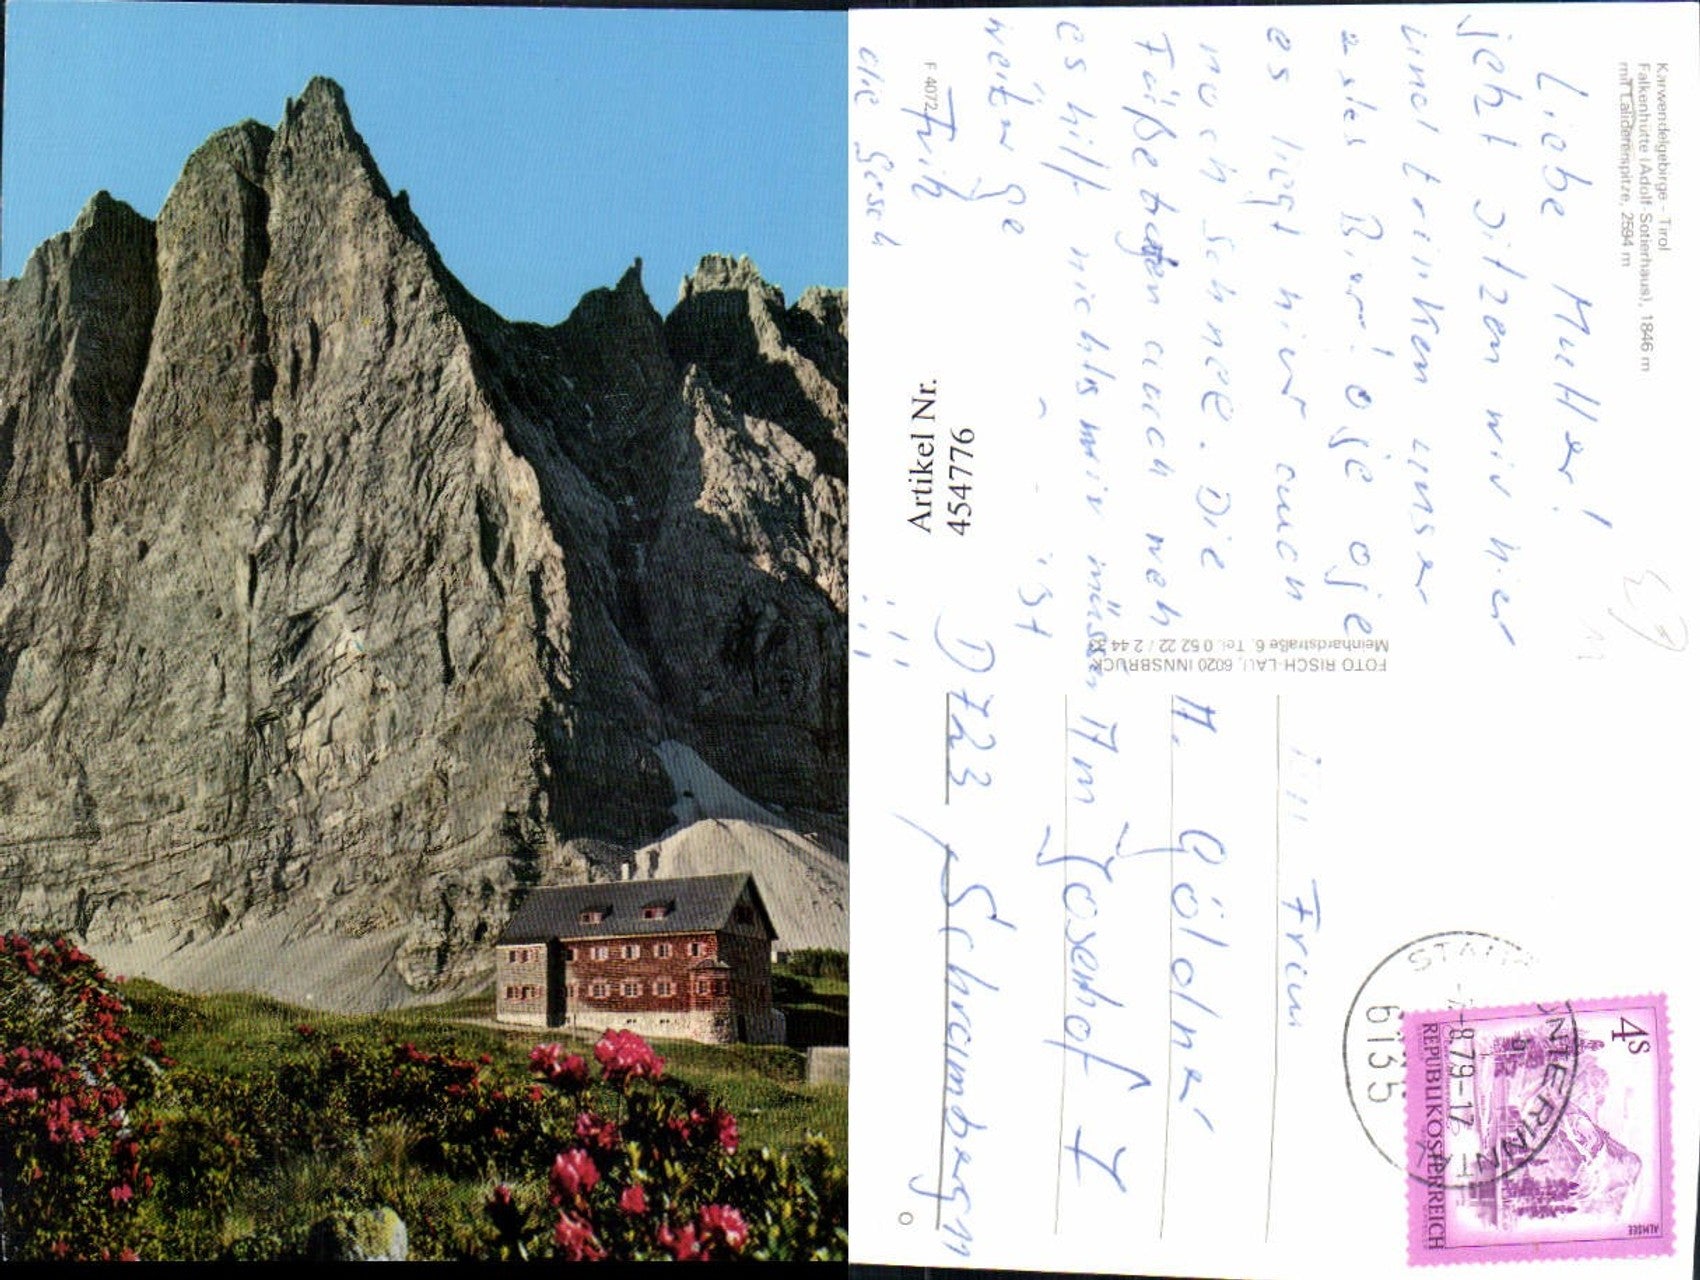 Karwendelgebirge - Tirol
Falkenhütte (Adolf-Sotierhaus), 1846 m
mit Laliderenspitze, 2594 m
Liebe Mutter!
jetzt sitzen wir hier
und trinken unser
Bier! oje oje
es liegt hier auch
noch Schnee. Die
Füße tragen auch weh
es hilft nichts wir müssen
weiter ge
ist
F 4072
die
FOTO RISCH-LAU, 6020 INNSBRUCK
Meinhardstraße 6, Tel. 0 52 22 / 2 44 33
Artikel Nr.
454776
Frau
A. Göldner
Am Josenhof 7
D 723 Schramberg 11
6135
8.79-17
4s
REPUBLIK ÖSTERREICH
ALMSEE